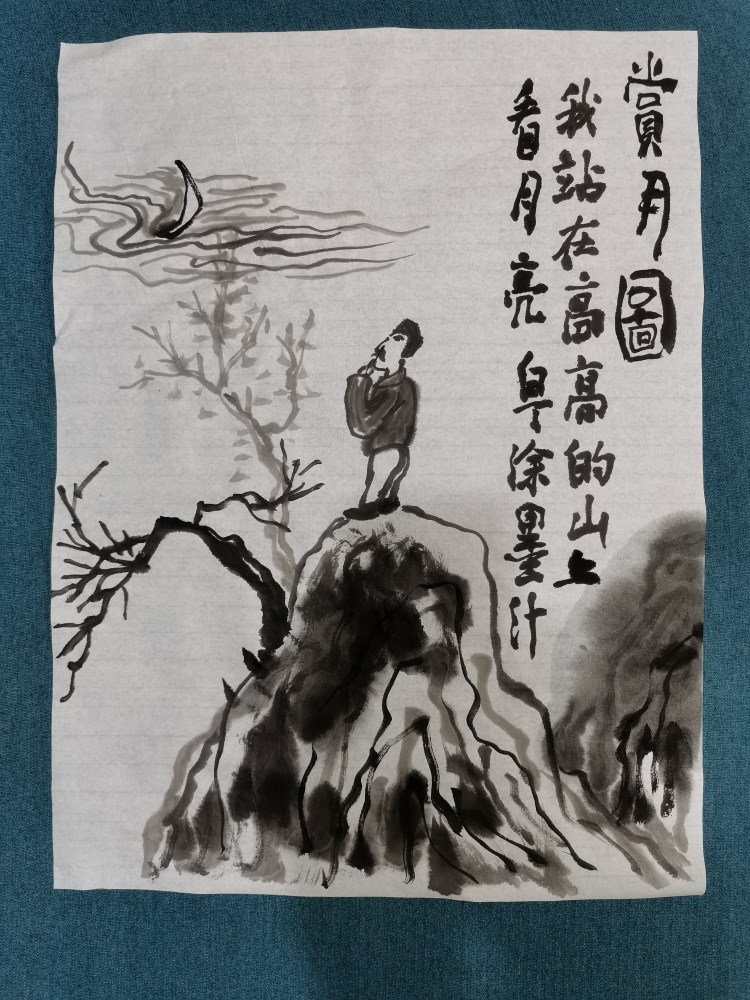 賞月圖
我站在高高的山上
看月亮 涂墨汁